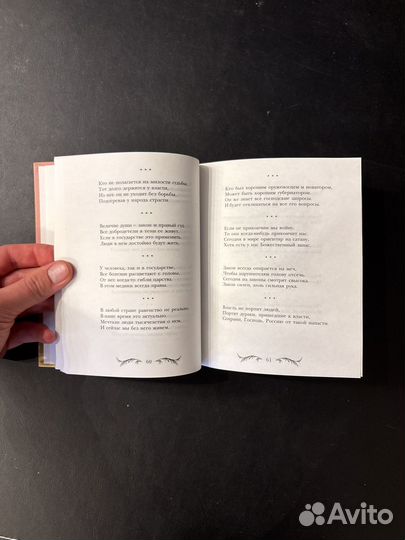 * * *
Кто не полагается на милости судьбы,
Тот долго держится у власти,
Из нее он не уходит без борьбы,
Подогревая у народа страсти.
* * *
Величие души – закон и правый суд,
Все добродетели в тени ее живут.
Если в государстве это применить,
Люди в нем достойно будут жить.
* * *
У человека, так и в государстве,
Все болезни расцветают с головы,
От них когда-то гибли царства,
В этом медики всегда правы.
* * *
В любой стране равенство не реально,
В наше время это актуально.
Мечтали люди тысячелетия о нем,
И сейчас мы без него живем.
60
* * *
Кто был хорошим оруженосцем и новатором,
Может быть хорошим губернатором.
Он же знает все господские запросы
И будет откликаться на все его вопросы.
* * *
Если не прикончим мы войну,
То она когда-нибудь прикончит нас.
Сегодня в мире ориентир на сатану,
Хотя есть у нас Божественный запас.
* * *
Закон всегда опирается на меч,
Чтобы партнентскам голову отсечь.
Сегодня на законы смотрят свысока.
Закон силен, коль сильная рука.
* * *
Власть не портит людей,
Портят дураки, пришедшие к власти,
Сохрани, Господь, Россию от такой напасти.
61
Avito